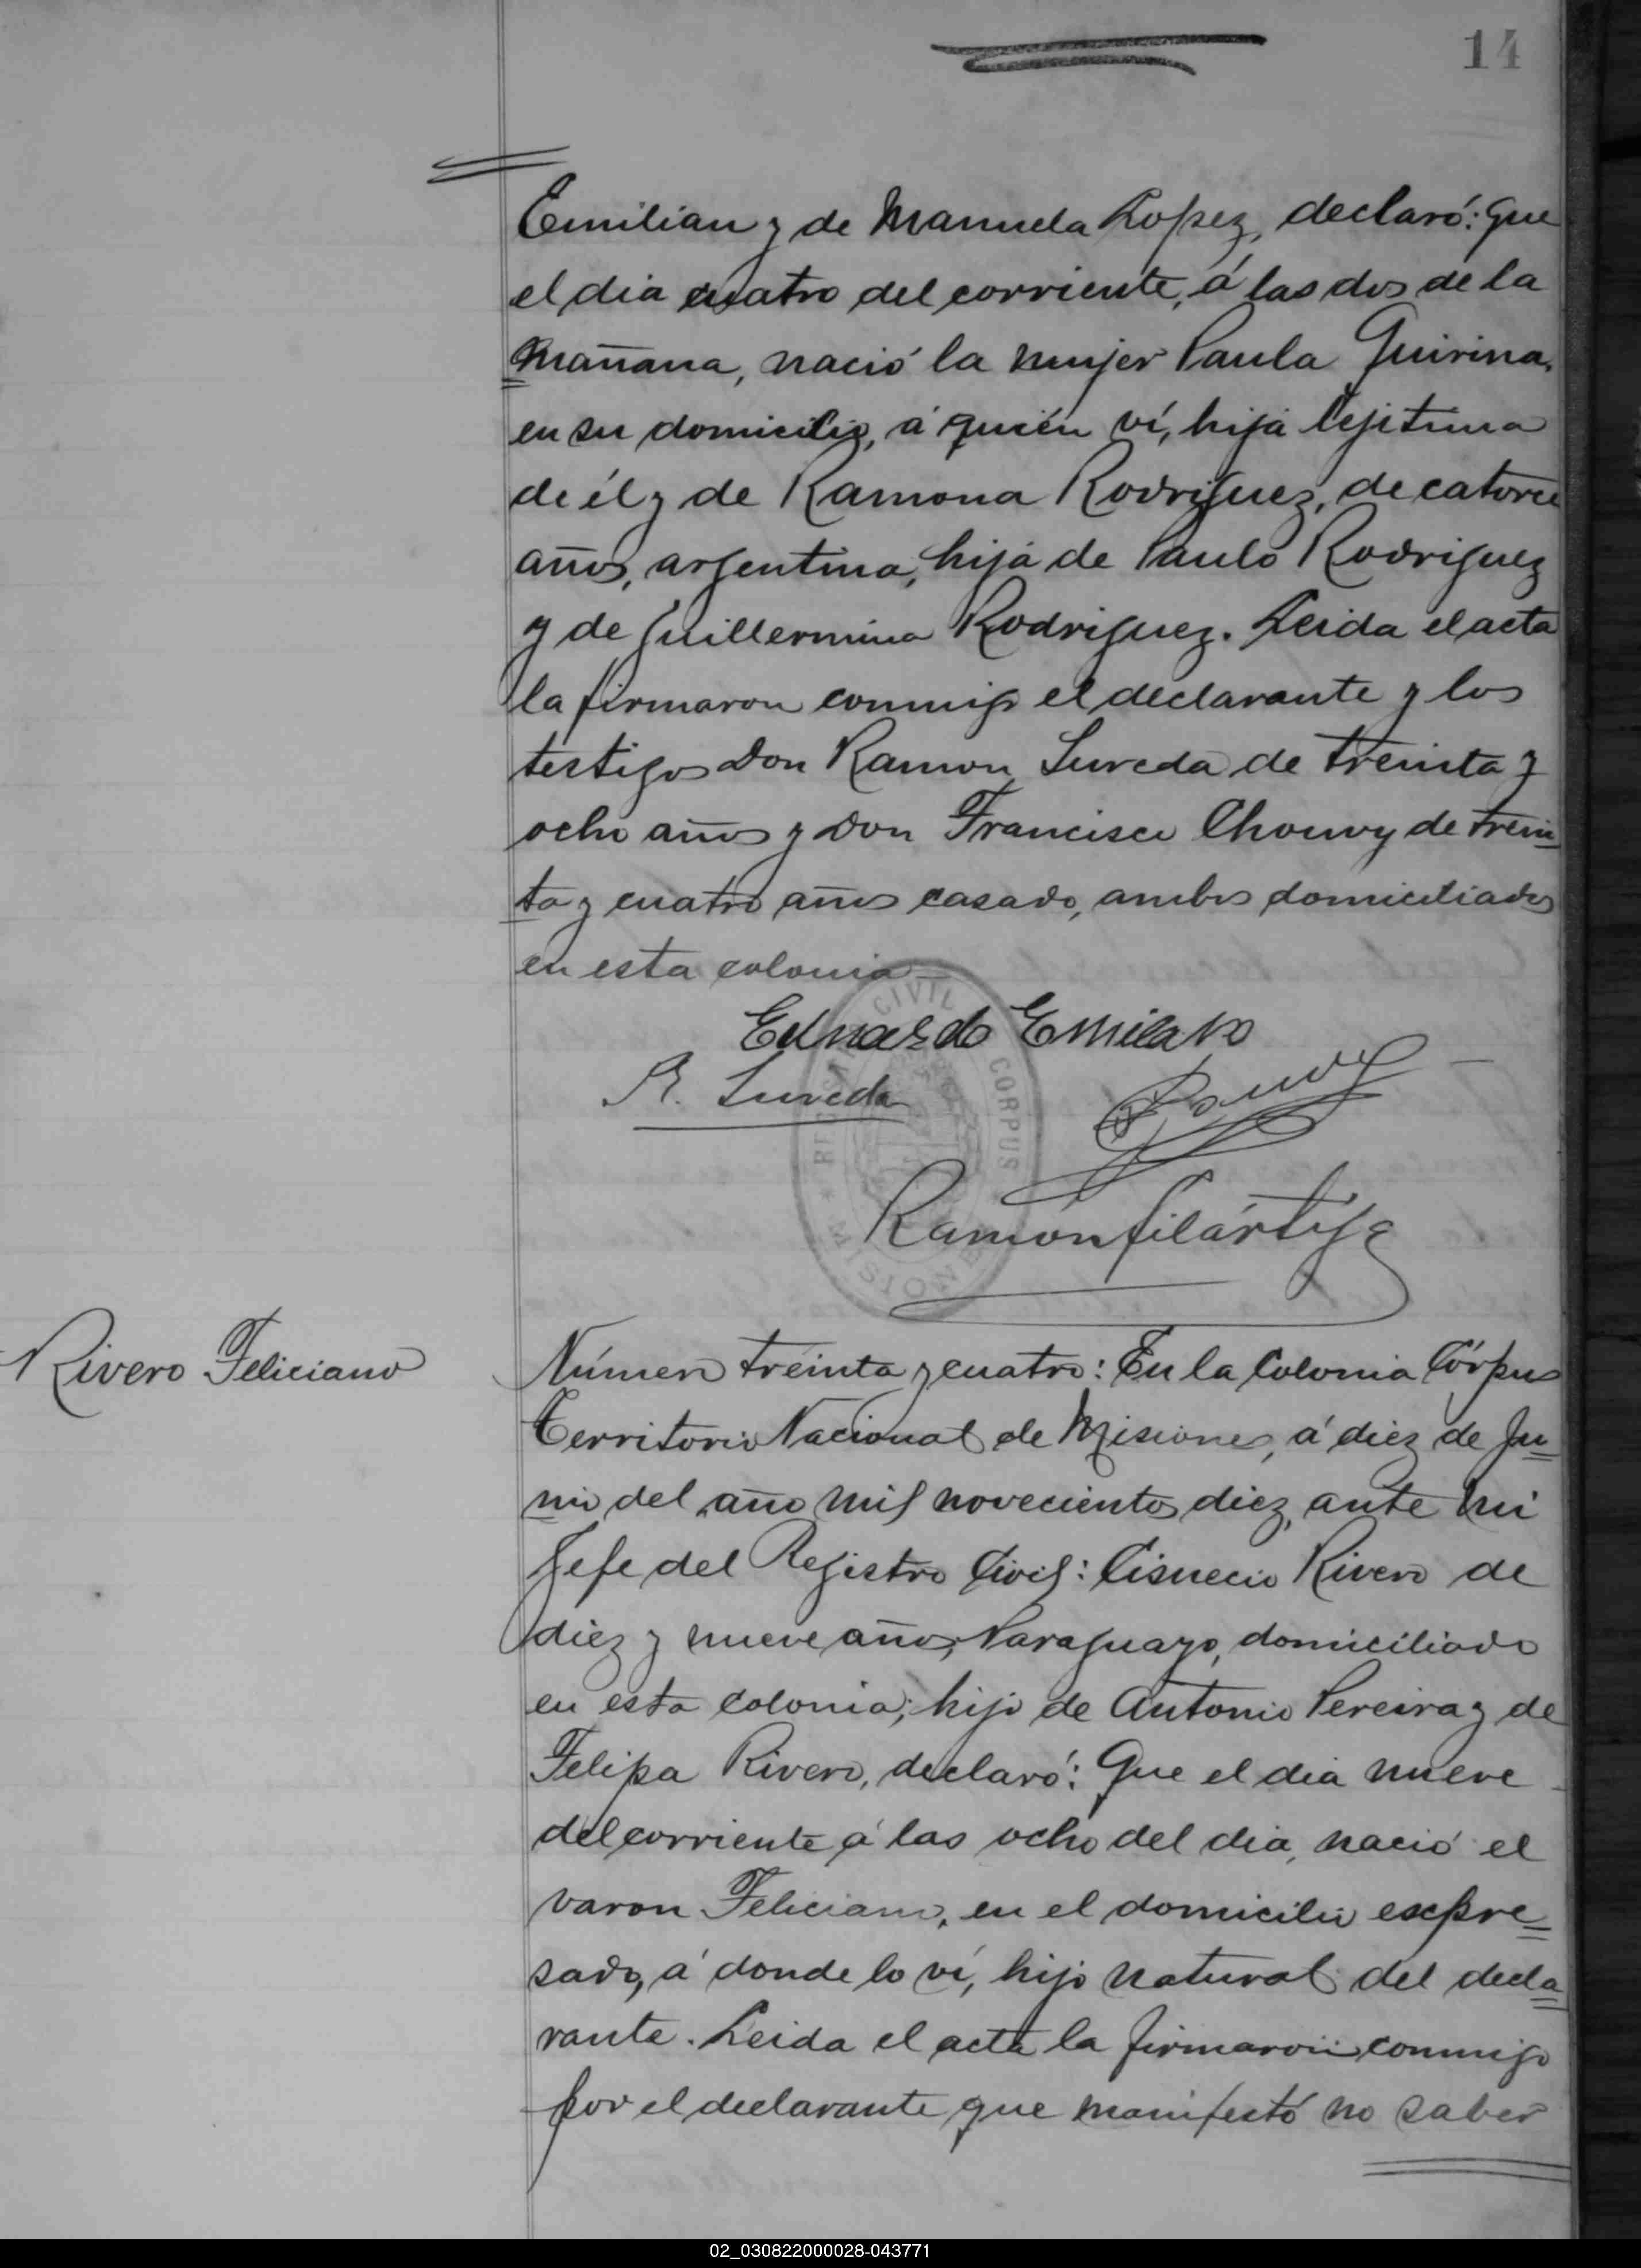 14
Emilian y de Manuela Lopez, declaró: que
el dia cuatro del corriente, á las dos de la
mañana, nació la mujer Paula Quirina,
en su domicilio, á quién ví, hija lejitima
de él y de Ramona Rodriguez, de catorce
años, argentina, hija de Paulo Rodriguez
y de Guillermina Rodriguez. Leida el acta
la firmaron conmigo el declarante y los
testigos Don Ramon Sureda de treinta y
ocho años y Don Francisco Chouvy de trein
ta y cuatro años casado, ambos domiciliados
en esta colonia
Eduardo Emilano
R. Sureda
CIVIL CORPUS MISIONES
Ramón Filártiga
Rivero Feliciano
Número treinta y cuatro: En la Colonia Córpus
Territorio Nacional de Misiones, á diez de Ju=
nio del año mil novecientos diez, ante mi
Jefe del Registro Civil: Rivero de
diez y nueve años, Paraguayo, domiciliado
en esta colonia; hijo de Antonio Pereira y de
Felipa Rivero, declaró: Que el dia nueve
del corriente á las ocho del dia, nació el
varon Feliciano, en el domicilio espre=
sado, á donde lo ví, hijo natural del decla=
rante. Leida el acta la firmaron conmigo
por el declarante que manifestó no saber
02_030822000028-043771